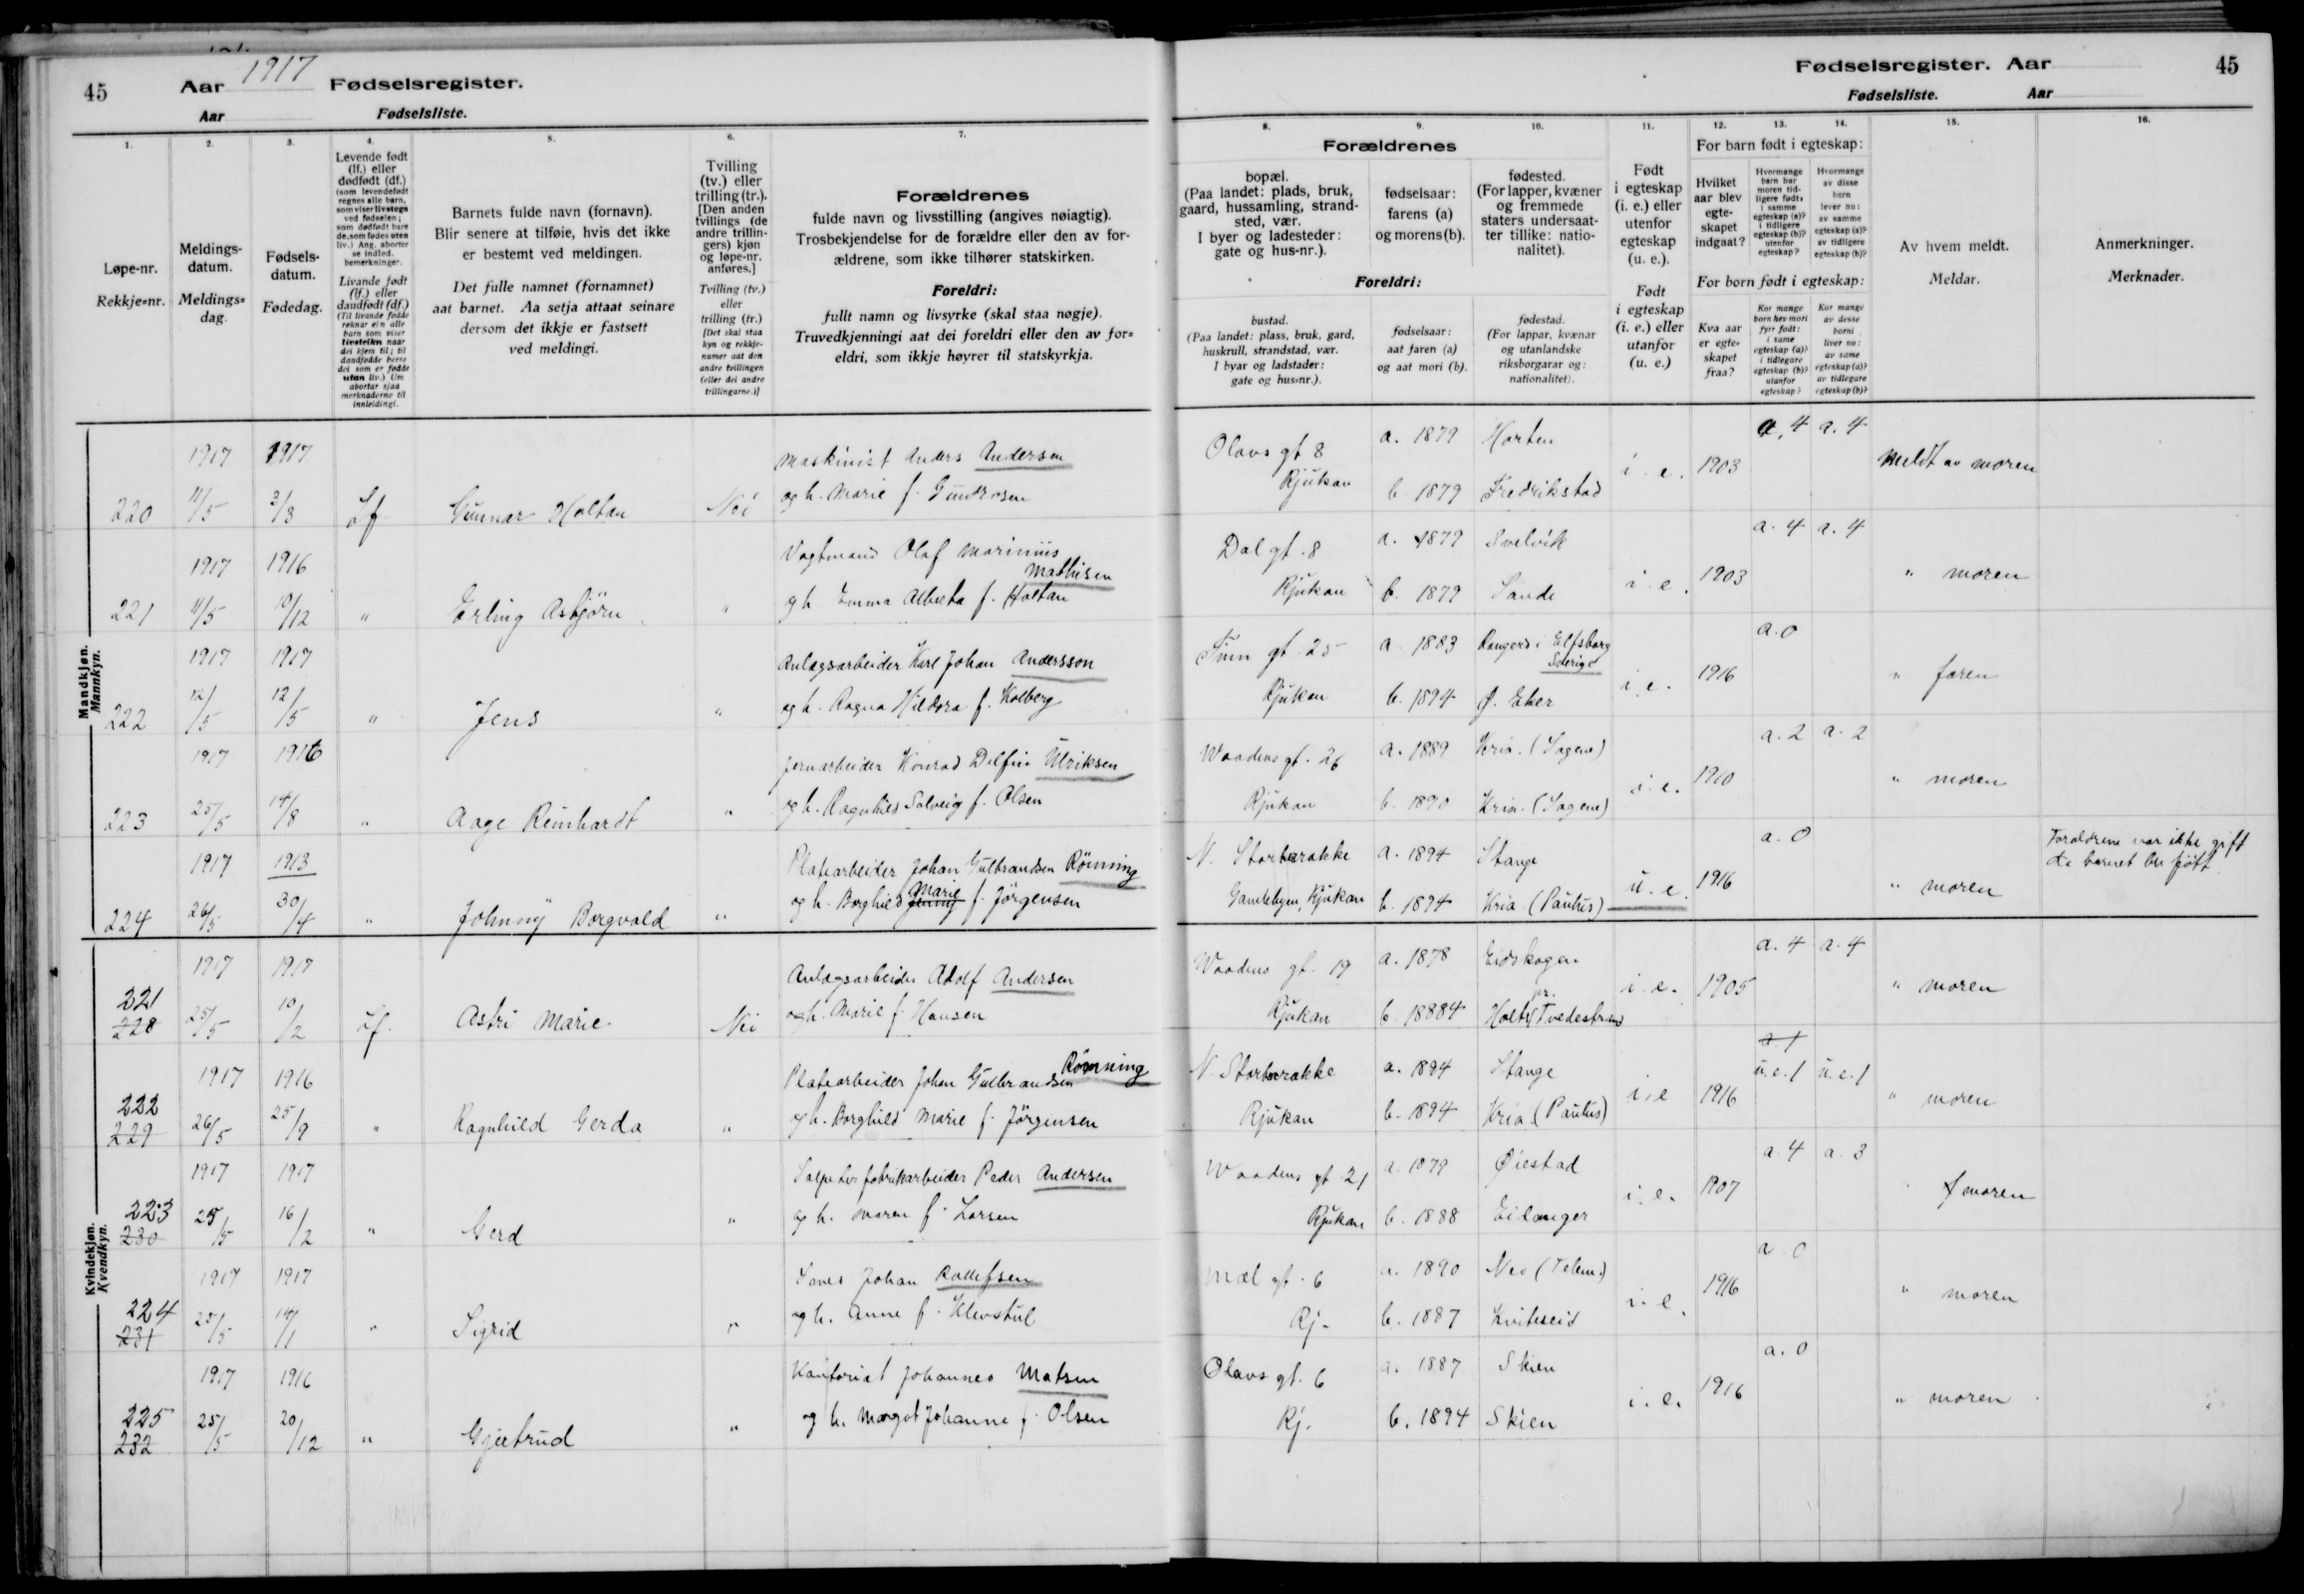 1917
45 Aar Fødselsregister.
Aar Fødselsliste.
1. 2. 3. 4. 5. 6. 7.
Løpe-nr.
Rekkje=nr.
Meldings-
datum.
Meldings=
dag.
Fødsels-
datum.
Fødedag.
Levende født
(lf.) eller
dødfødt (df.)
(som levendefødt
regnes alle barn,
som viser livstegn
ved fødselen;
som dødfødt bare
de, som fødes uten
liv.) Ang. aborter
se indled.
bemerkninger.
Livande født
(lf.) eller
daudfødt (df.)
(Til livande fødde
reknar ein alle
barn som viser
livsteikn naar
dei kjem til; til
daudfødde berre
dei som er fødde
utan liv.) Um
abortar sjaa
merknaderne til
innleidingi.
Barnets fulde navn (fornavn).
Blir senere at tilføie, hvis det ikke
er bestemt ved meldingen.
Det fulle namnet (fornamnet)
aat barnet. Aa setja attaat seinare
dersom det ikkje er fastsett
ved meldingi.
Tvilling
(tv.) eller
trilling (tr.).
[Den anden
tvillings (de
andre trillin-
gers) kjøn
og løpe-nr.
anføres.]
Tvilling (tv.)
eller
trilling (tr.)
[Det skal staa
kyn og rekkje-
numer aat den
andre tvillingen
(eller dei andre
trillingarne.)]
Forældrenes
fulde navn og livsstilling (angives nøiagtig).
Trosbekjendelse for de forældre eller den av for-
ældrene, som ikke tilhører statskirken.
Foreldri:
fullt namn og livsyrke (skal staa nøgje).
Truvedkjenningi aat dei foreldri eller den av for=
eldri, som ikkje høyrer til statskyrkja.
Mandkjøn.
Mannkyn.
1917 1917 Maskinist Anders Andersen
220 11/5 3/3 Lf Gunnar Holtan Nei og h. Marie f. Gundrosen
1917 1916 Vagtmand Olaf Marinius
Mathisen
221 11/5 10/12 " Erling Asbjörn " og h. Emma Alberta f. Holtan
1917 1917 Anlægsarbeider Karl Johan Andersson
222 12/5 12/5 " Jens " og h. Ragna Hildora f. Kolberg
1917 1916 Jernarbeider Konrad Delfin Ulriksen
223 25/5 14/8 " Aage Reinhardt " og h. Ragnhild Solveig f. Olsen
1917 1913 Platearbeider Johan Gulbrandsen Rönning
Marie
224 26/5 30/4 " Johnny Borgvald " og h. Borghild Jenny f. Jörgensen
Kvindekjøn.
Kvendkyn.
1917 1917 Anlægsarbeider Adolf Andersen
221
228 25/5 10/2 Lf. Astri Marie Nei og h. Marie f. Hansen
1917 1916 Platearbeider Johan Gulbrandsen Rönning
222
229 26/5 25/9 " Ragnhild Gerda " og h. Borghild Marie f. Jörgensen
1917 1917 Salpeterfabrikarbeider Peder Andersen
223
230 25/5 16/2 " Gerd " og h. Maren f. Larsen
1917 1917 Johan Rollefsen
224
231 25/5 14/1 " Sigrid " og h. Anne f. Klevstul
1917 1916 Kontorist Johannes Matsen
225
232 25/5 20/12 " Gjertrud " og h. Margot Johanne f. Olsen
Fødselsregister. Aar 45
Fødselsliste. Aar
8. 9. 10. 11. 12. 13. 14. 15. 16.
Forældrenes
bopæl.
(Paa landet: plads, bruk,
gaard, hussamling, strand-
sted, vær.
I byer og ladesteder:
gate og hus-nr.).
fødselsaar:
farens (a)
og morens (b).
fødested.
(For lapper, kvæner
og fremmede
staters undersaat-
ter tillike: natio-
nalitet).
Foreldri:
bustad.
(Paa landet: plass, bruk, gard,
huskrull, strandstad, vær.
I byar og ladstader:
gate og hus=nr.).
fødselsaar:
aat faren (a)
og aat mori (b).
fødestad.
(For lappar, kvænar
og utanlandske
riksborgarar og:
nationalitet).
Født
i egteskap
(i. e.) eller
utenfor
egteskap
(u. e.).
Født
i egteskap
(i. e.) eller
utanfor
(u. e.)
For barn født i egteskap:
Hvilket
aar blev
egte-
skapet
indgaat?
Hvormange
barn har
moren tid-
ligere født:
i samme
egteskap (a)?
i tidligere
egteskap (b)?
utenfor
egteskap?
Hvormange
av disse
barn
lever nu:
av samme
egteskap (a)?
av tidligere
egteskap (b)?
For born født i egteskap:
Kva aar
er egte-
skapet
fraa?
Kor mange
born hev mori
fyrr født:
i same
egteskap (a)?
i tidlegare
egteskap (b)?
utanfor
egteskap?
Kor mange
av desse
borni
liver no:
av same
egteskap (a)?
av tidlegare
egteskap (b)?
Av hvem meldt.
Meldar.
Anmerkninger.
Merknader.
Olavs gt 8 a. 1879 Horten a. 4 a. 4
Rjukan b. 1879 Fredrikstad i. e. 1903 Meldt av moren
Dal gt. 8 a. 1879 Svelvik a. 4 a. 4
Rjukan b. 1879 Sande i. e. 1903 " moren
Finn gt. 25 a. 1883 i Elfsborg a. 0
Sverige
Rjukan b. 1894 Ø. Eker i. e. 1916 " faren
Waadens gt. 26 a. 1889 Kria. (Sagene) a. 2 a. 2
Rjukan b. 1890 Kria. (Sagene) i. e. 1910 " moren
N. Storbarakke a. 1894 Stange a. 0 Forældrene var ikke gift
da barnet ble født
Gamlebyen, Rjukan b. 1894 Kria (Paulus) u. e. 1916 " moren
Waadens gt. 19 a. 1878 Eidskogen a. 4 a. 4
Rjukan b. 18884 Holt pr. Tvedestrand i. e. 1905 " moren
a. 1
N. Storbarakke a. 1894 Stange u. e. 1 u. e. 1
Rjukan b. 1894 Kria (Paulus) i. e 1916 " moren
Waadens gt 21 a. 1879 Øiestad a. 4 a. 3
Rjukan b. 1888 Eidanger i. e. 1907 " moren
Mæl gt. 6 a. 1890 Nes (Telem.) a. 0
Rj. b. 1887 Kviteseid i. e. 1916 " moren
Olavs gt. 6 a. 1887 Skien a. 0
Rj. b. 1894 Skien i. e. 1916 " moren